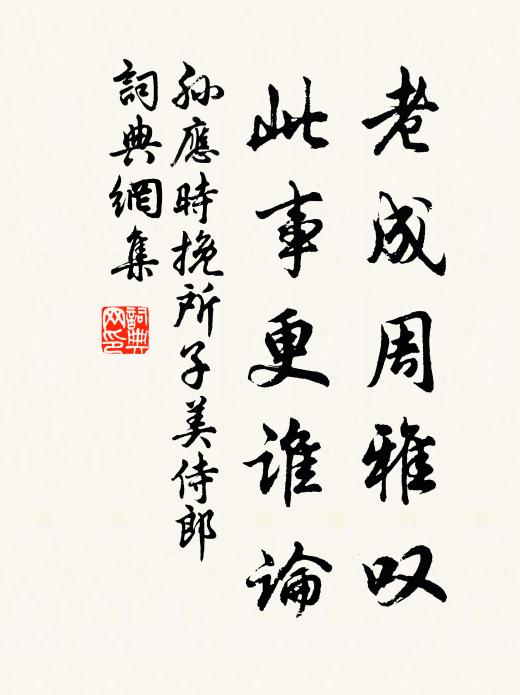 老成周雅叹
此事更谁論
孙應時挽所子美侍郎
詞典網集
詞典
网印